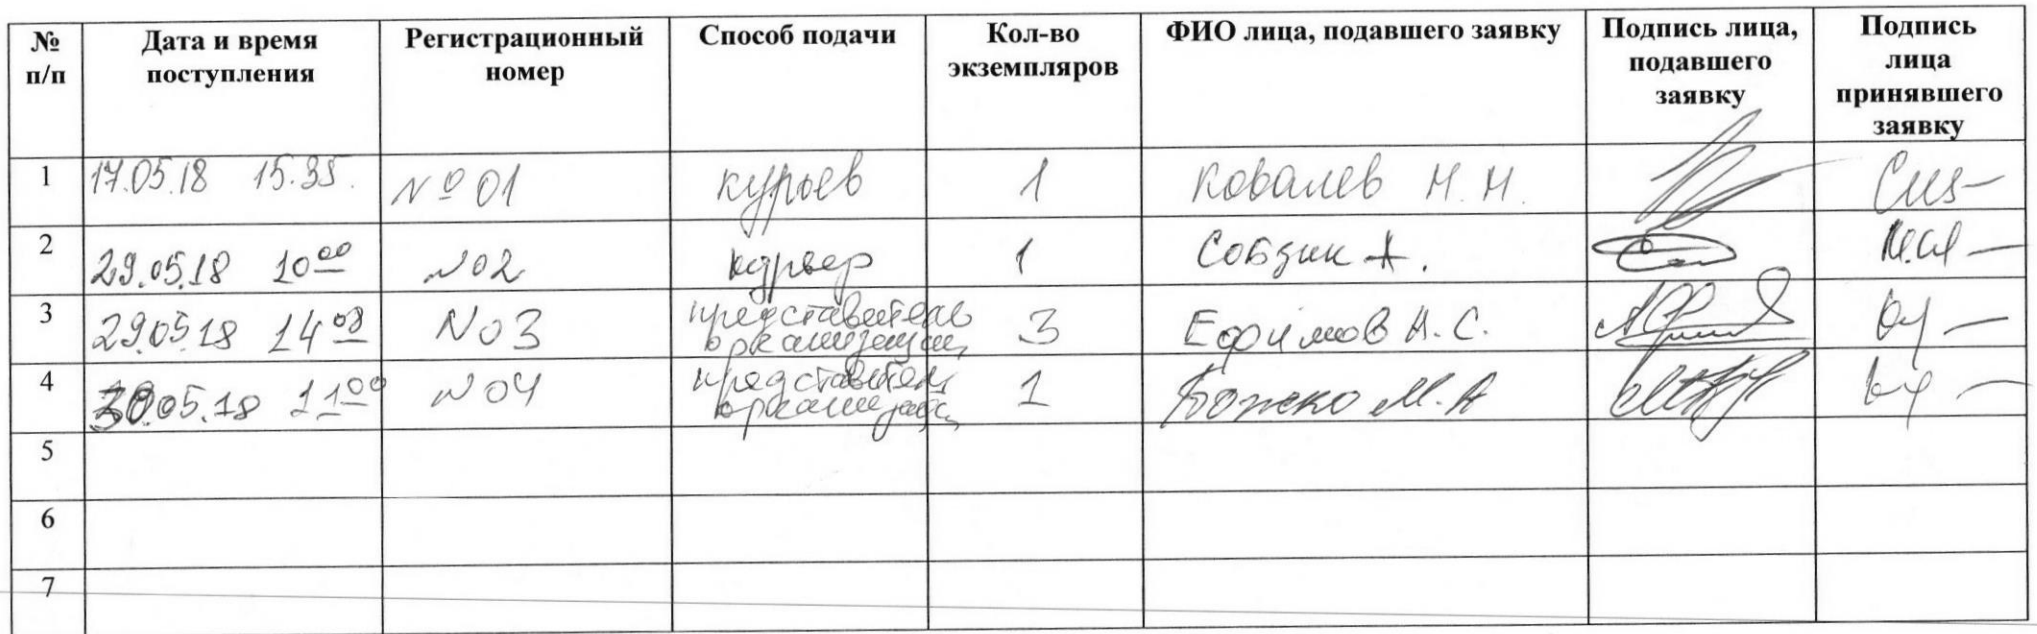 № п/п Дата и время поступления Регистрационный номер Способ подачи Кол-во экземпляров ФИО лица, подавшего заявку Подпись лица, подавшего заявку Подпись лица принявшего заявку
1 17.05.18 15.35. №01 курьев 1 Ковалев Н.Н.
2 29.05.18 10 00 №02 курьер 1 Собзик А.
3 29.05.18 14 08 N03 представитель организации 3 Ефимов А.С.
4 30.05.18 11 00 N04 представитель организации 1 Божко М.А
5
6
7